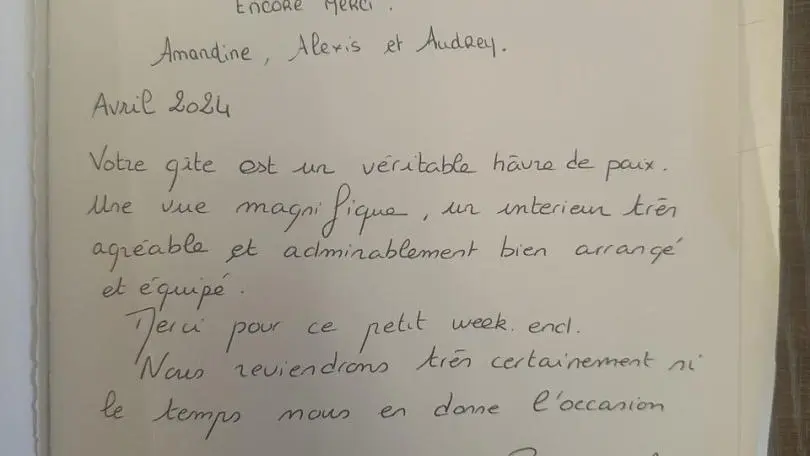 Encore Merci.
Amandine, Alexis et Audrey.
Avril 2024
Votre gîte est un véritable hâvre de paix.
Une vue magnifique, un interieur très
agréable et adminablement bien arrangé
et équipé.
Merci pour ce petit week.end.
Nous reviendrons très certainement si
le temps nous en donne l'occasion